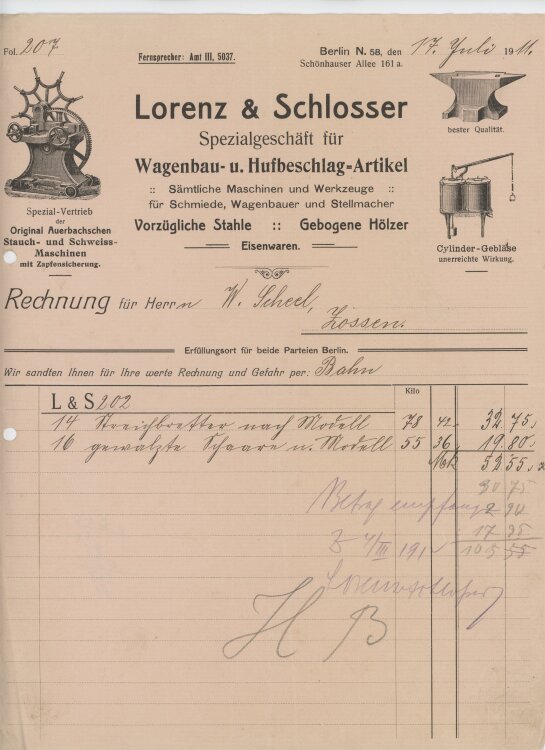 Fol. 207
Fernsprecher: Amt III, 5037.
Berlin N. 58, den 17. Juli 1911.
Schönhauser Allee 161a.
Lorenz & Schlosser
Spezialgeschäft für
Wagenbau- u. Hufbeschlag-Artikel
:: Sämtliche Maschinen und Werkzeuge ::
für Schmiede, Wagenbauer und Stellmacher
Vorzügliche Stahle :: Gebogene Hölzer
Eisenwaren.
Spezial-Vertrieb
der
Original Auerbachschen
Stauch- und Schweiss-
Maschinen
mit Zapfensicherung.
bester Qualität.
Cylinder-Gebläse
unerreichte Wirkung.
Rechnung für Herrn W. Scheel,
Zossen.
Erfüllungsort für beide Parteien Berlin.
Wir sandten Ihnen für Ihre werte Rechnung und Gefahr per: Bahn
Kilo
L & S 202
14 Streichbretter nach Modell 78 42,- 32.75,
16 gewalzte Schaare n. Modell 55 36,- 19.80,
Mk 52.55,
30 75
Betrag empfang
17 95
103 55
H B